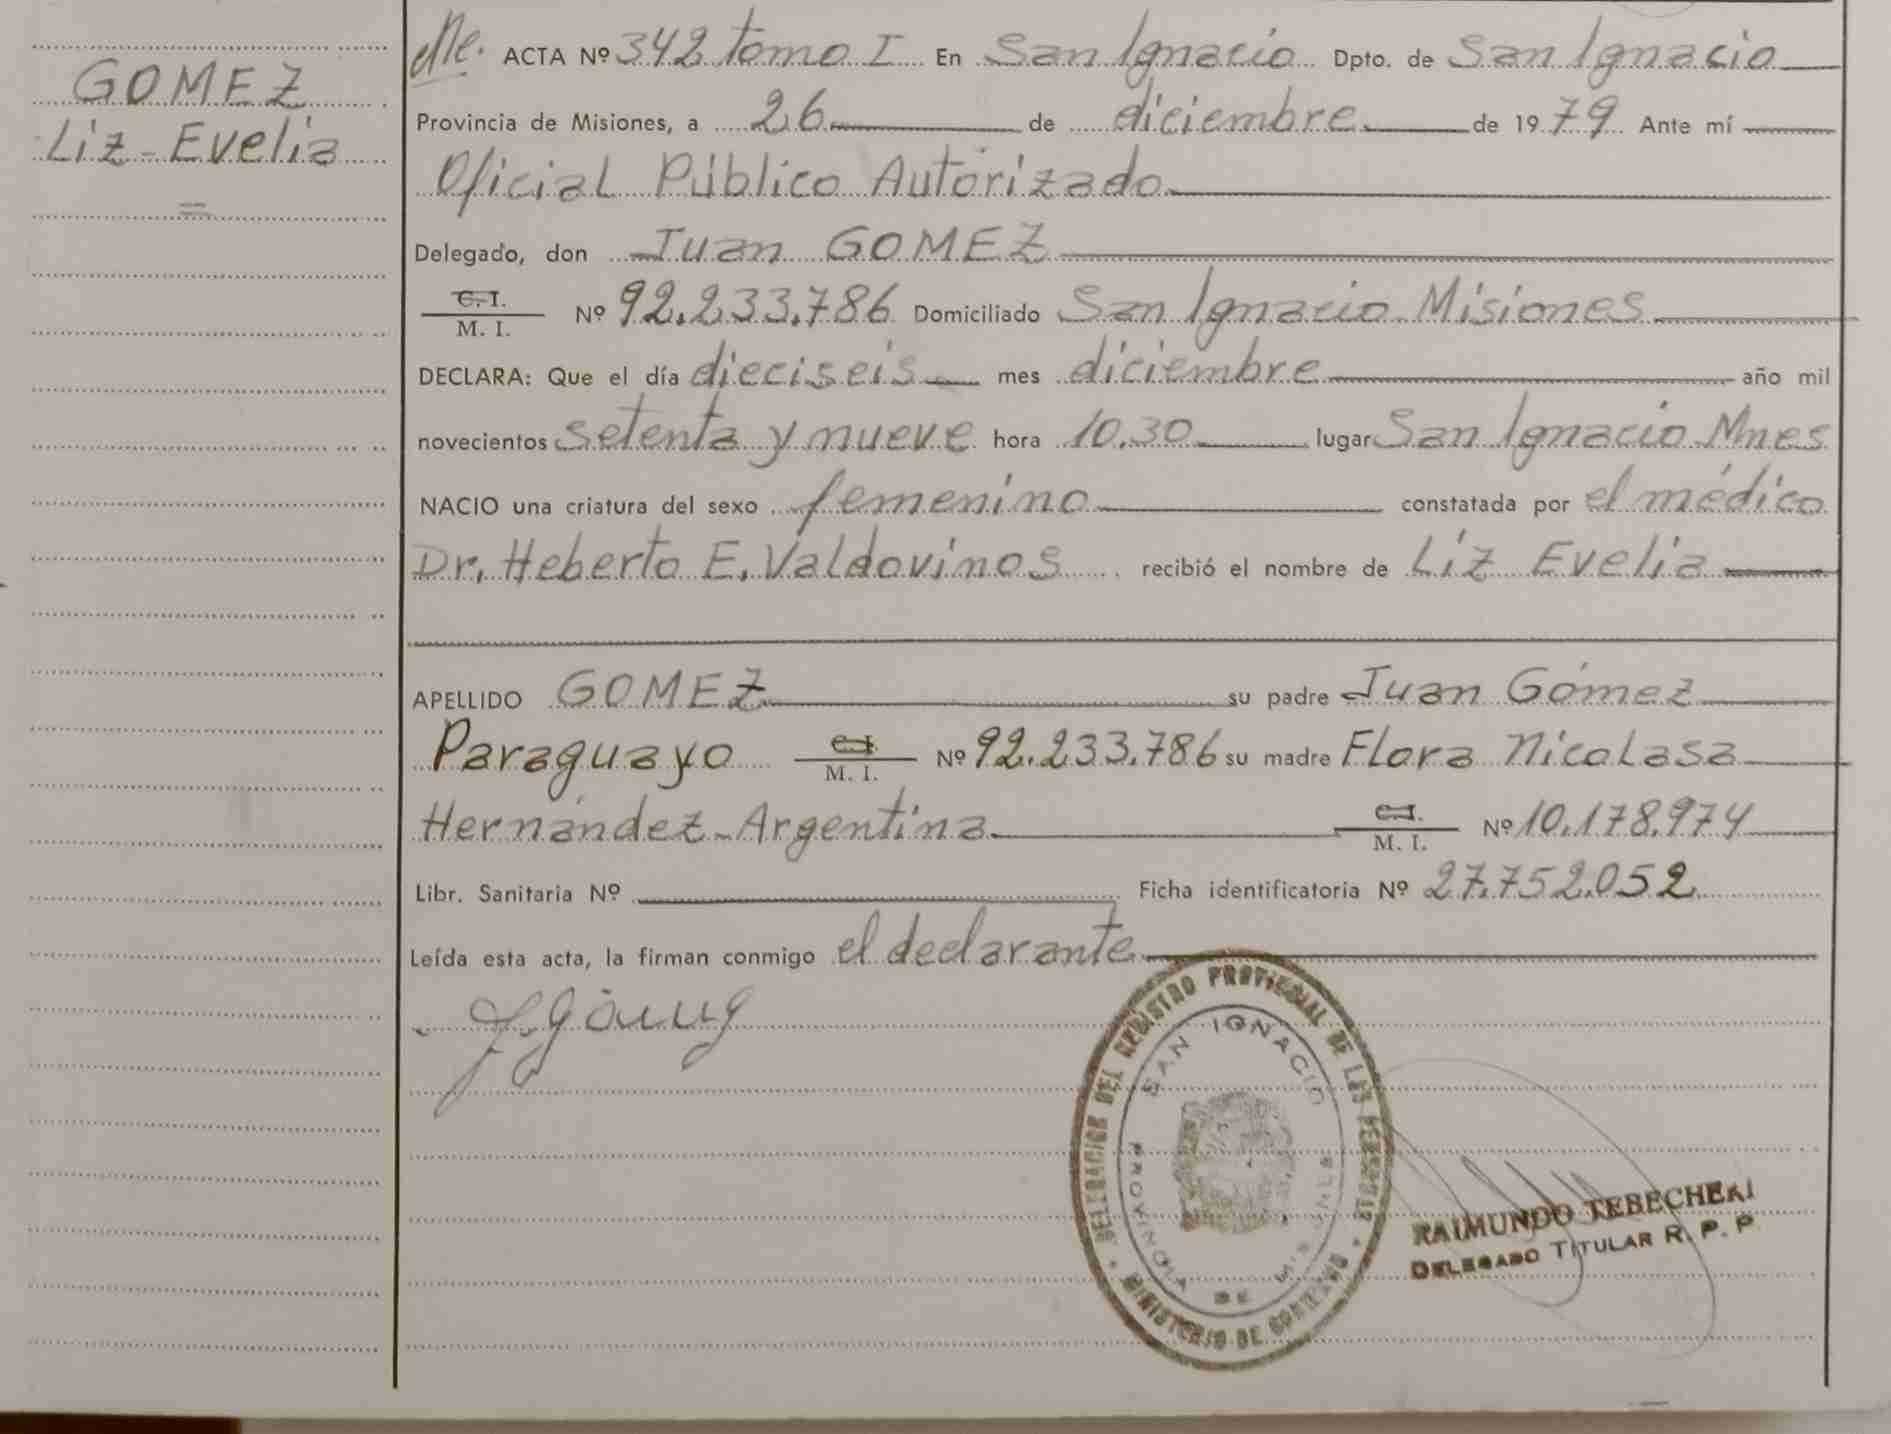 GOMEZ
Liz-Evelia
ACTA Nº 342 tomo I En San Ignacio Dpto. de San Ignacio
Provincia de Misiones, a 26 de diciembre de 1979 Ante mí
Oficial Público Autorizado
Delegado, don Juan GOMEZ
C.I.
M. I. Nº 92.233.786 Domiciliado San Ignacio Misiones
DECLARA: Que el día dieciseis mes diciembre año mil
novecientos setenta y nueve hora 10.30 lugar San Ignacio Mnes
NACIO una criatura del sexo femenino constatada por el médico
Dr. Heberto E. Valdovinos recibió el nombre de Liz Evelia
APELLIDO GOMEZ su padre Juan Gómez
Paraguayo C.I. M. I. Nº 92.233.786 su madre Flora Nicolasa
Hernández-Argentina C.I. M. I. Nº 10.178.974
Libr. Sanitaria Nº Ficha identificatoria Nº 27.752.052
Leída esta acta, la firman conmigo el declarante
DELEGACION DEL REGISTRO PROVINCIAL DE LAS PERSONAS
SAN IGNACIO
PROVINCIA DE MISIONES
MINISTERIO DE GOBIERNO
RAIMUNDO TEBECHERI
DELEGADO TITULAR R. P. P.